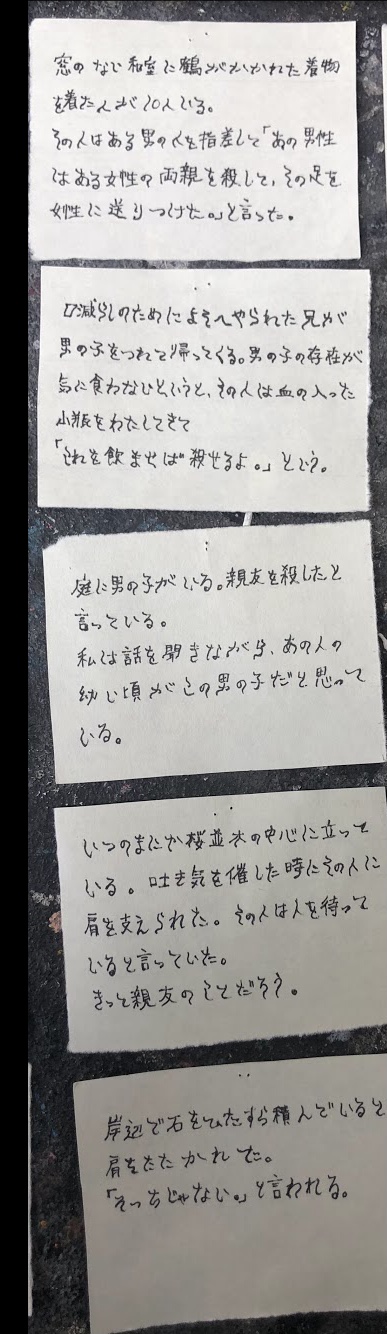 窓のない和室に鶴がかかれた着物
を着た人が10人いる。
その人はある男の人を指差して「あの男性
はある女性の両親を殺して、その足を
女性に送りつけた。」と言った。
口減らしのためによそへやられた兄が
男の子をつれて帰ってくる。男の子の存在が
気に食わないというと、その人は血の入った
小瓶をわたしてきて
「これを飲ませば殺せるよ。」という。
庭に男の子がいる。親友を殺したと
言っている。
私は話を聞きながら、あの人の
幼い頃がこの男の子だと思って
いる。
いつのまにか桜並木の中心に立って
いる。吐き気を催した時にその人に
肩を支えられた。その人は人を待って
いると言っていた。
きっと親友のことだろう。
岸辺で石をひたすら積んでいると
肩をたたかれた。
「そっちじゃない。」と言われる。